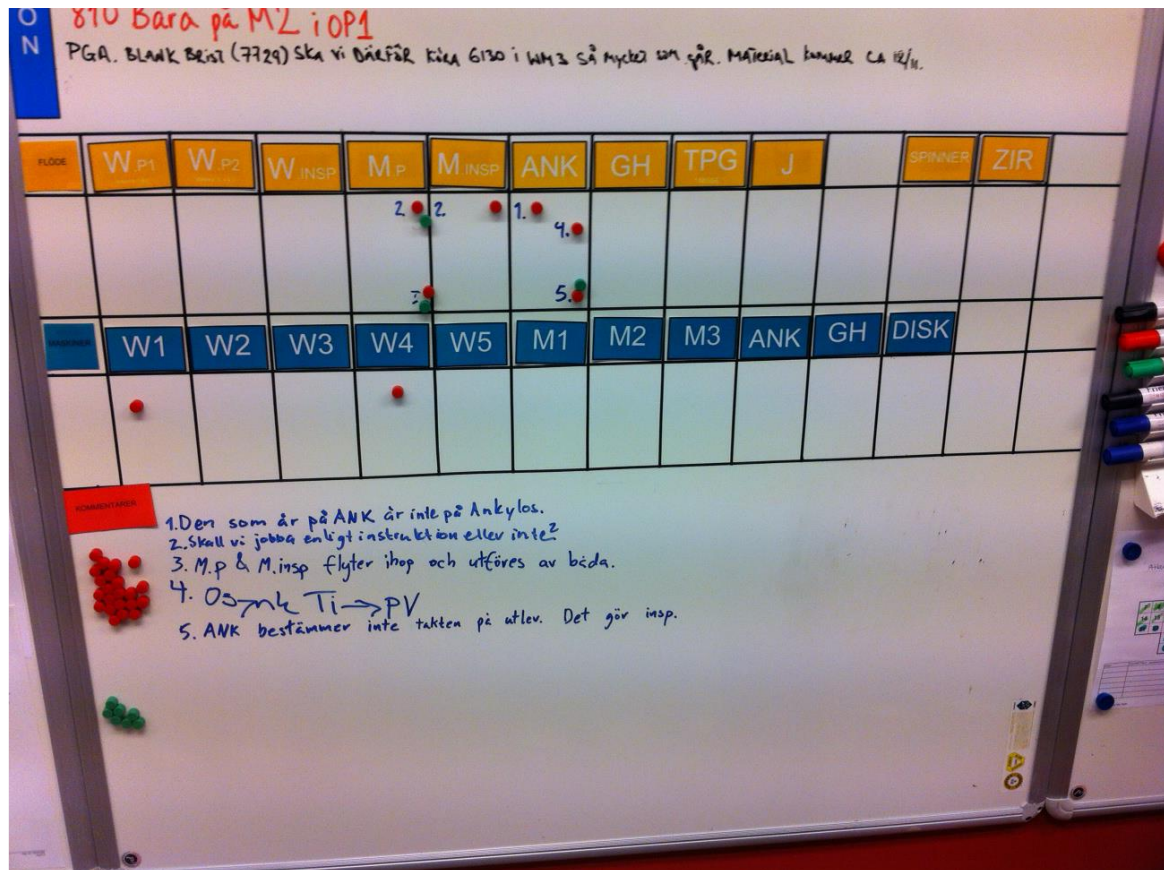 ON
810 Bara på M2 i OP1
PGA. BLANK BRIST (7729) SKA Vi DÄRFÖR KÖRA 6130 i WM3 SÅ mycket som går. MATERIAL kommer CA 12/11.
FLÖDE W.P1 W.P2 W.INSP M P M.INSP ANK GH TPG J SPINNER ZIR
2. 2. 1.
4.
5.
MASKINER W1 W2 W3 W4 W5 M1 M2 M3 ANK GH DISK
KOMMENTARER
1. Den som är på ANK är inte på Ankylos.
2. Skall vi jobba enligt instruktion eller inte?
3. M.p & M.insp flyter ihop och utföres av båda.
4. Osynk Ti → PV
5. ANK bestämmer inte takten på utlev. Det gör insp.